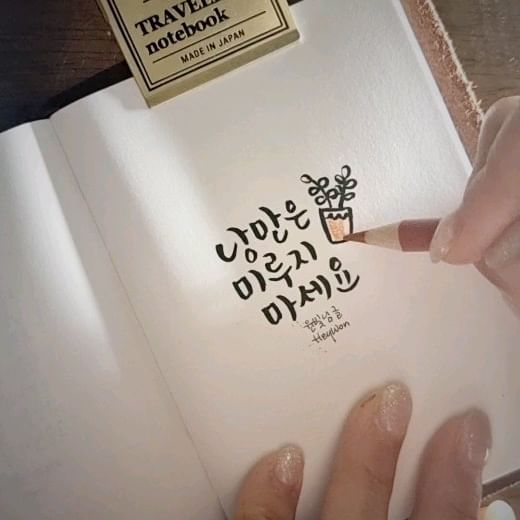 TRAVELE
notebook
MADE IN JAPAN
낭만은
미루지
마세요
HeyWon